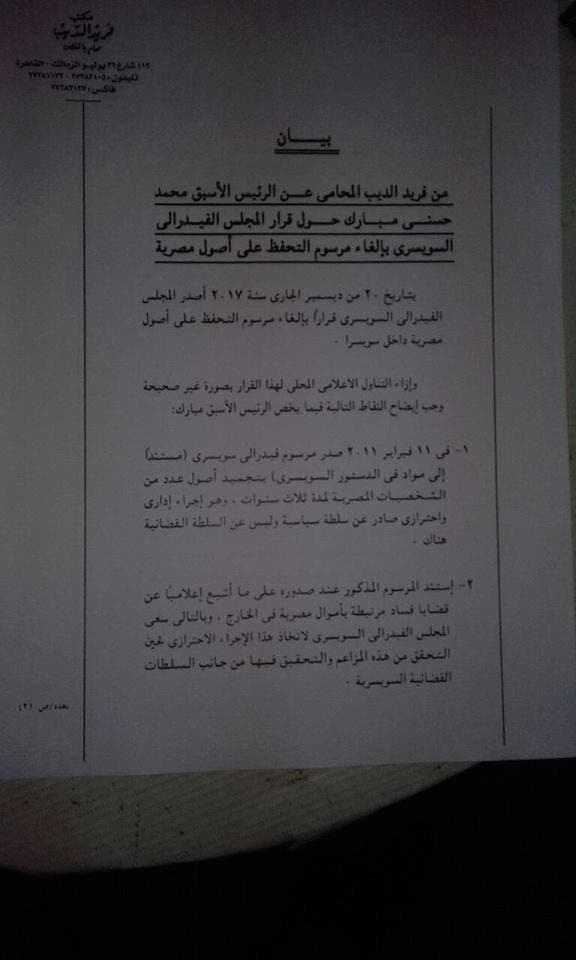 مكتب
فريد الديب
محام بالنقض
١١٢ شارع ٢٦ يوليو الزمالك - القاهرة
تليفون : ٢٧٣٨٢١٠٥ - ٢٧٣٨١١٧٢
فاكس : ٢٧٣٨٣١٣٧
بيـــــان
من فريد الديب المحامى عـــن الرئيس الأسبق محمد
حسنى مبـارك حـــول قرار المجلس الفيدرالى
السويسرى بإلغاء مرسوم التحفظ على أصول مصرية
بتاريخ ٢٠ من ديسمبر الجارى سنة ٢٠١٧ أصدر المجلس
الفيدرالى السويسرى قراراً بإلغاء مرسوم التحفظ على أصول
مصرية داخل سويسرا .
وإزاء التناول الاعلامى المحلى لهذا القرار بصورة غير صحيحة
وجب إيضاح النقاط التالية فيما يخص الرئيس الأسبق مبارك:
١- فى ١١ فبراير ٢٠١١ صدر مرسوم فيدرالى سويسرى (مستنداً
إلى مواد فى الدستور السويسرى) بتجميد أصول عدد من
الشخصيات المصرية لمدة ثلاث سنوات ، وهو إجراء إدارى
واحترازى صادر عن سلطة سياسية وليس عن السلطة القضائية
هناك .
٢- إستند المرسوم المذكور عند صدوره على ما أشيع إعلاميًا عن
قضايا فساد مرتبطة بأموال مصرية فى الخارج ، وبالتالى سعى
المجلس الفيدرالى السويسرى لاتخاذ هذا الإجراء الاحترازى لحين
التحقق من هذه المزاعم والتحقيق فيها من جانب السلطات
القضائية السويسرية .
بعده/ص (٢)